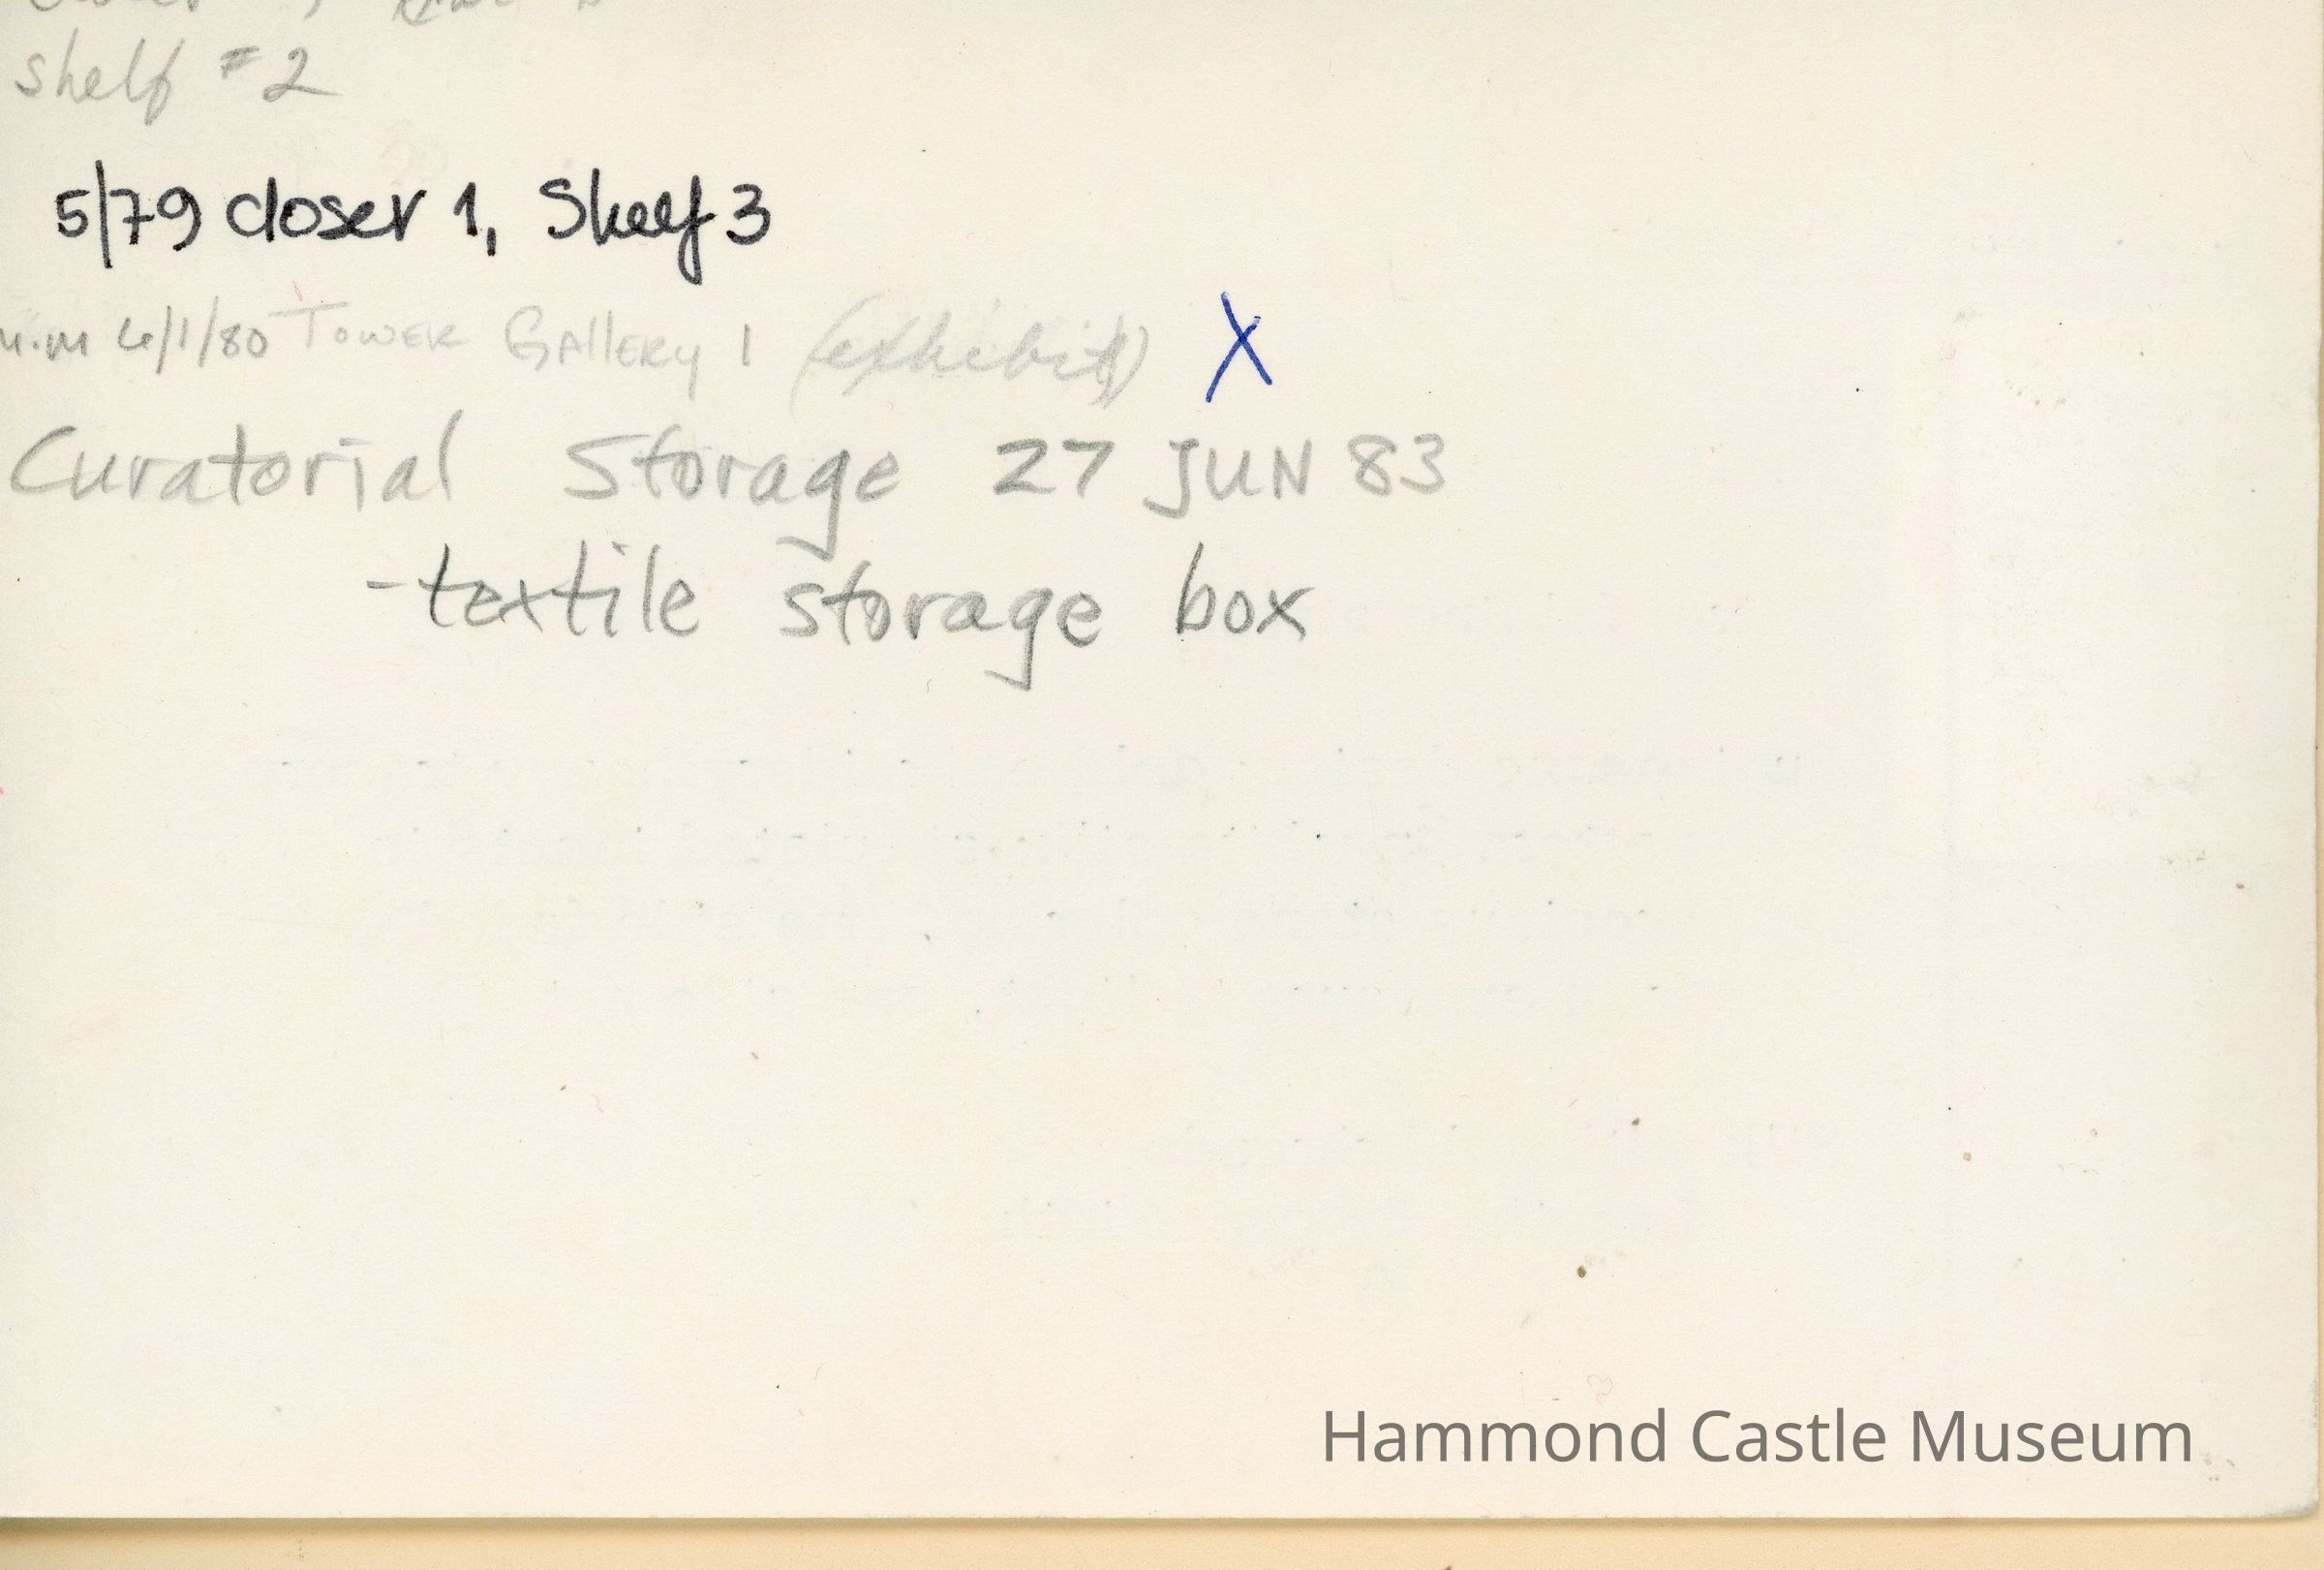 shelf #2
5/79 closer 1, Shelf 3
M.M 6/1/80 Tower Gallery 1 (exhibit) X
Curatorial Storage 27 JUN 83
-textile storage box
Hammond Castle Museum